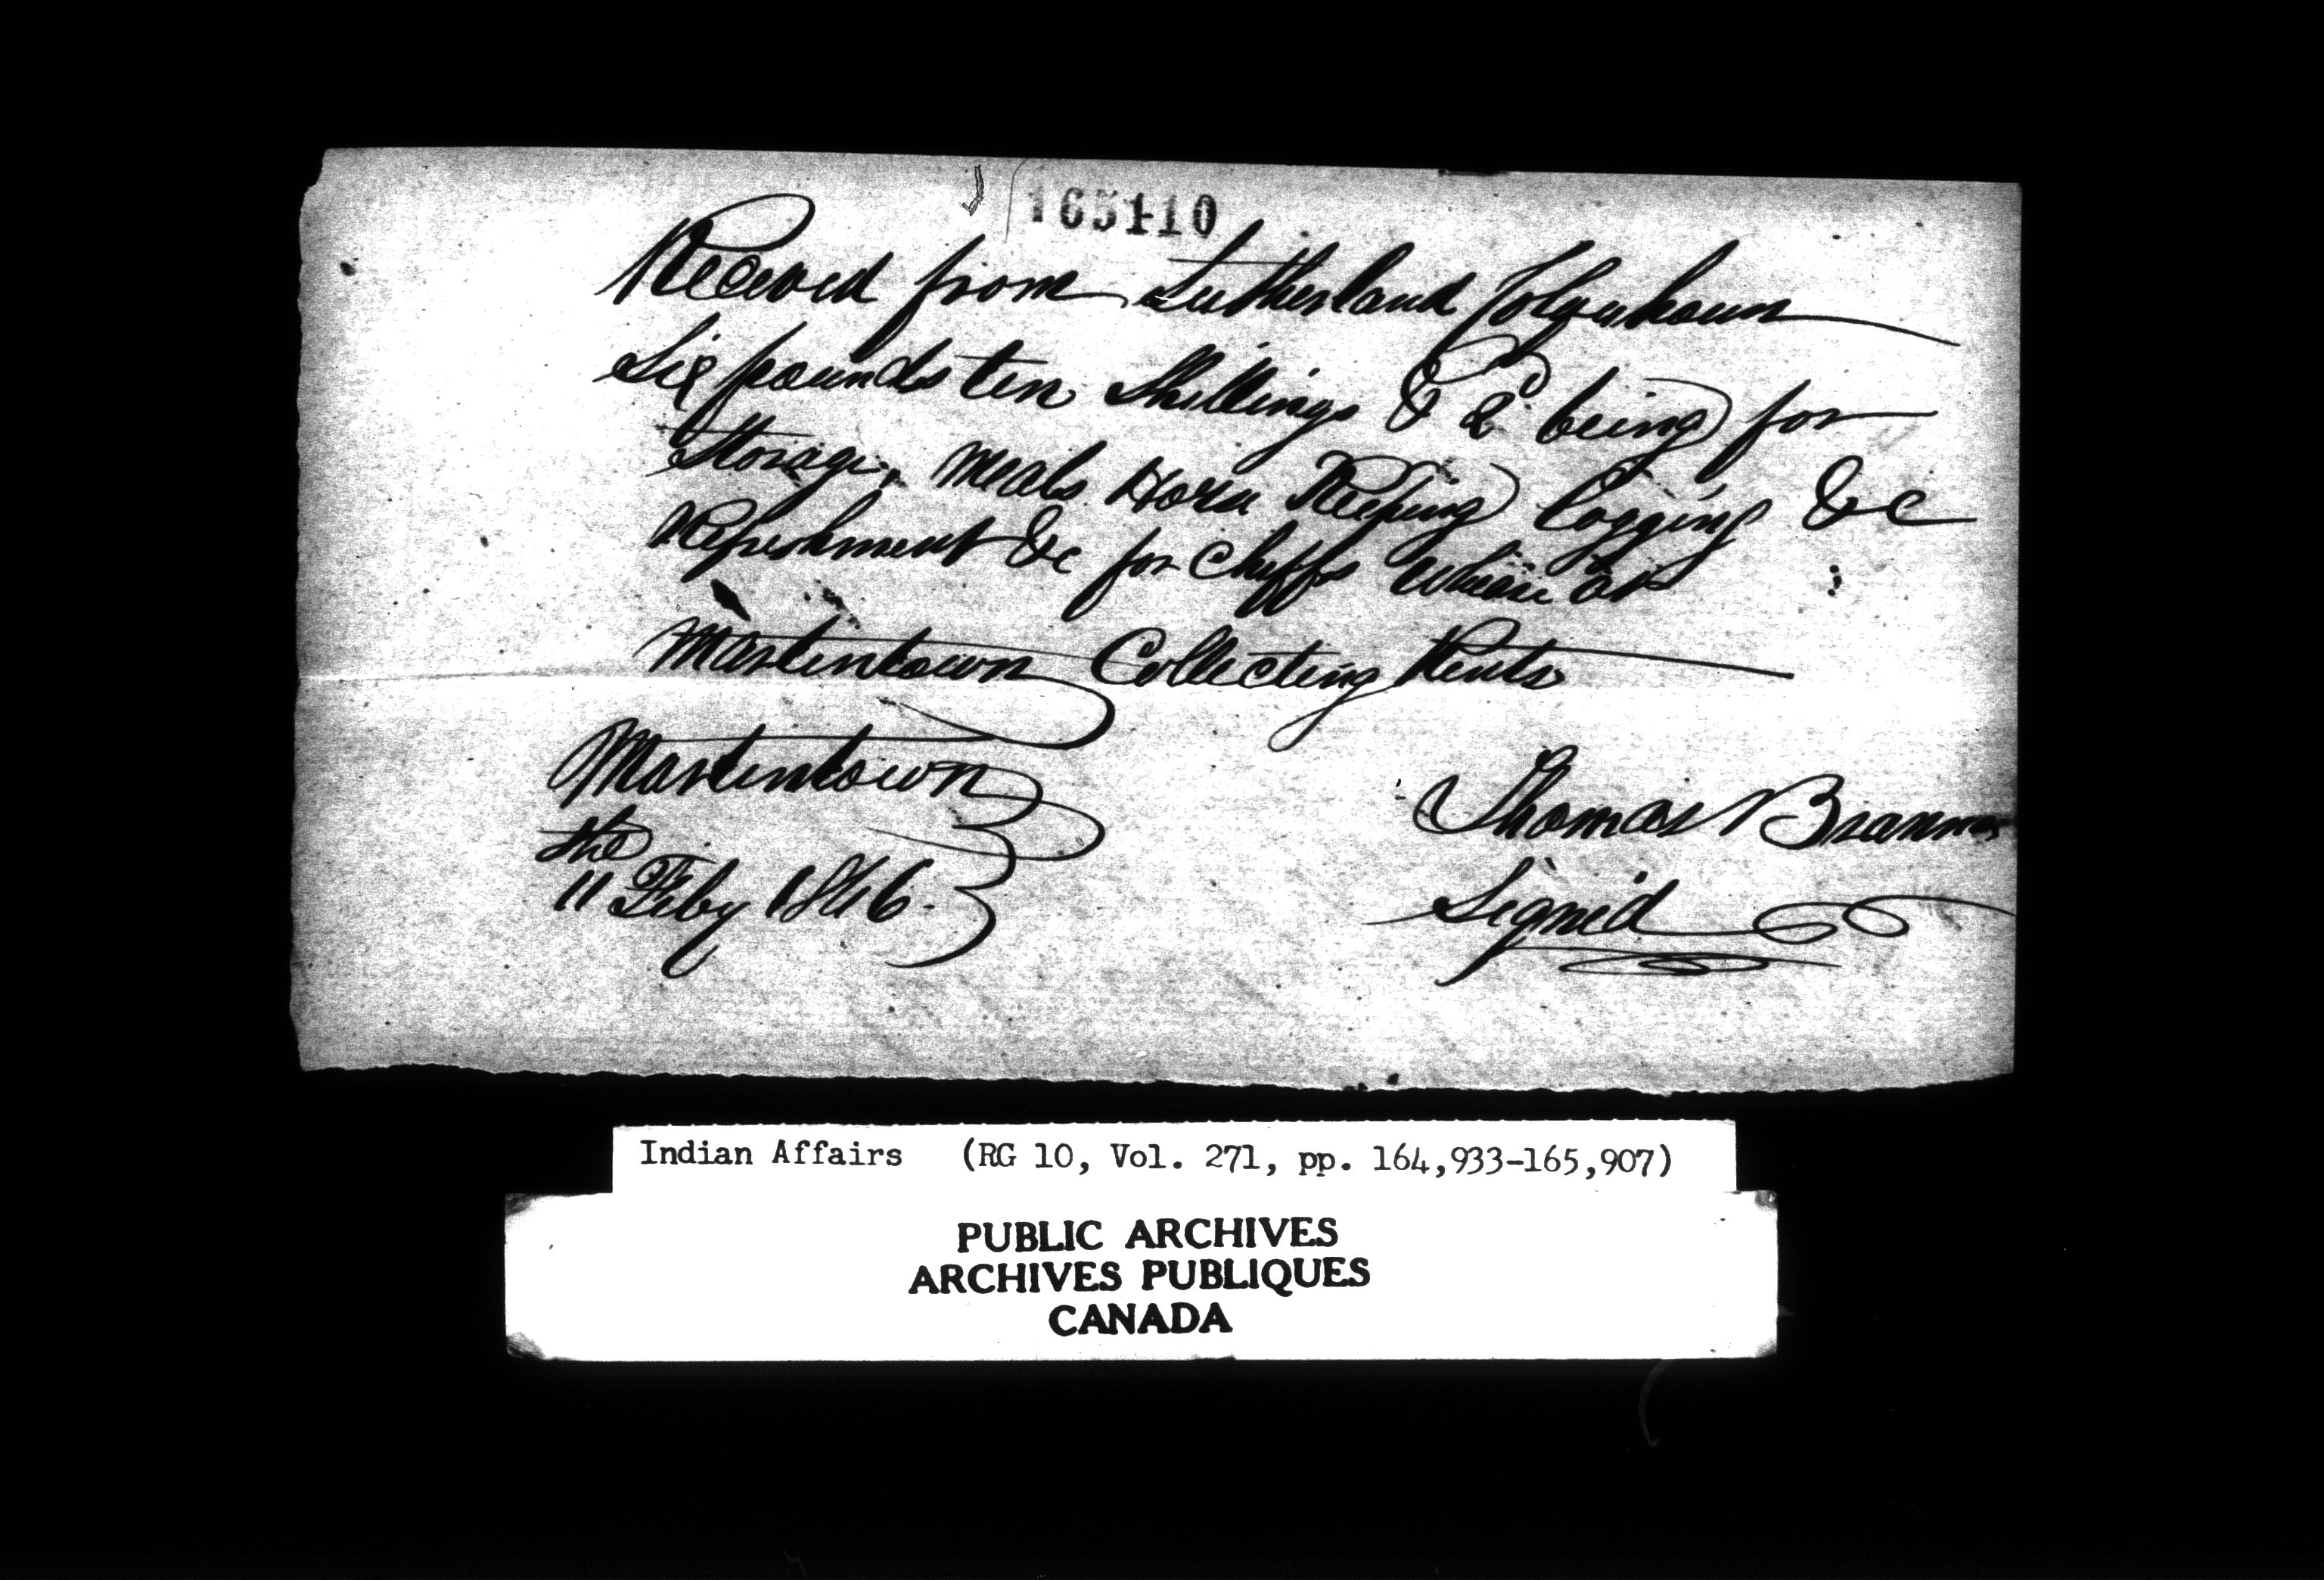 165110
Received from Sutherland Colquhoun
Six pounds ten Shillings & 2d being for
Storage, Meals Horse Keeping logging &c
Refreshment &c for Chiffs whiie at
Martintown Collecting Rents
Martintown
the
11 Feby 1846.
Thomas Brannon
Signed
Indian Affairs (RG 10, Vol. 271, pp. 164,933-165,907)
PUBLIC ARCHIVES
ARCHIVES PUBLIQUES
CANADA